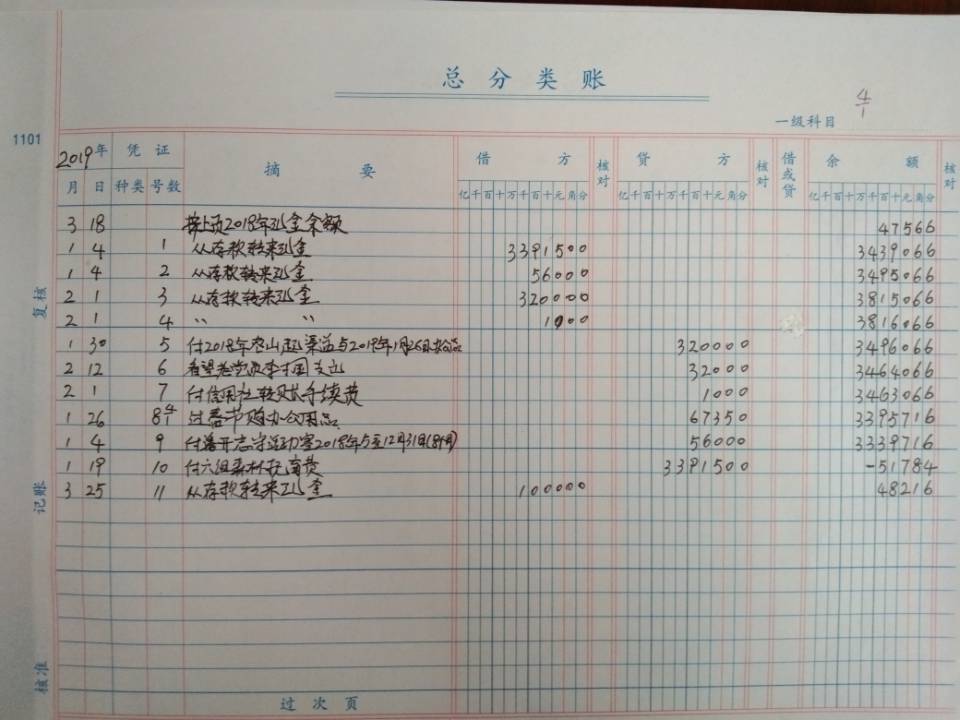 总分类账
4/1
一级科目
1101
2019年 凭证 摘要 借方 核对 贷方 核对 借或贷 余额 核对
月 日 种类 号数 亿千百十万千百十元角分 亿千百十万千百十元角分 亿千百十万千百十元角分
3 18 接上页2018年现金余额 47566
1 4 1 从存款转来现金 3391500 3439066
1 4 2 从存款转来现金 56000 3495066
2 1 3 从存款转来现金 320000 3815066
2 1 4 〃 〃 1000 3816066
1 30 5 付2018年 与2018年1月26日 320000 3496066
2 12 6 看望老党员李 国支出 32000 3464066
2 1 7 付信用社转账手续费 1000 3463066
1 26 8 4/1 过春节购办公用品 67350 3395716
1 4 9 付 开志守活动室2018年5至12月31日(8个月) 56000 3339716
1 19 10 付六组 费 3391500 -51784
3 25 11 从存款转来现金 100000 48216
过次页
复核
记账
核准